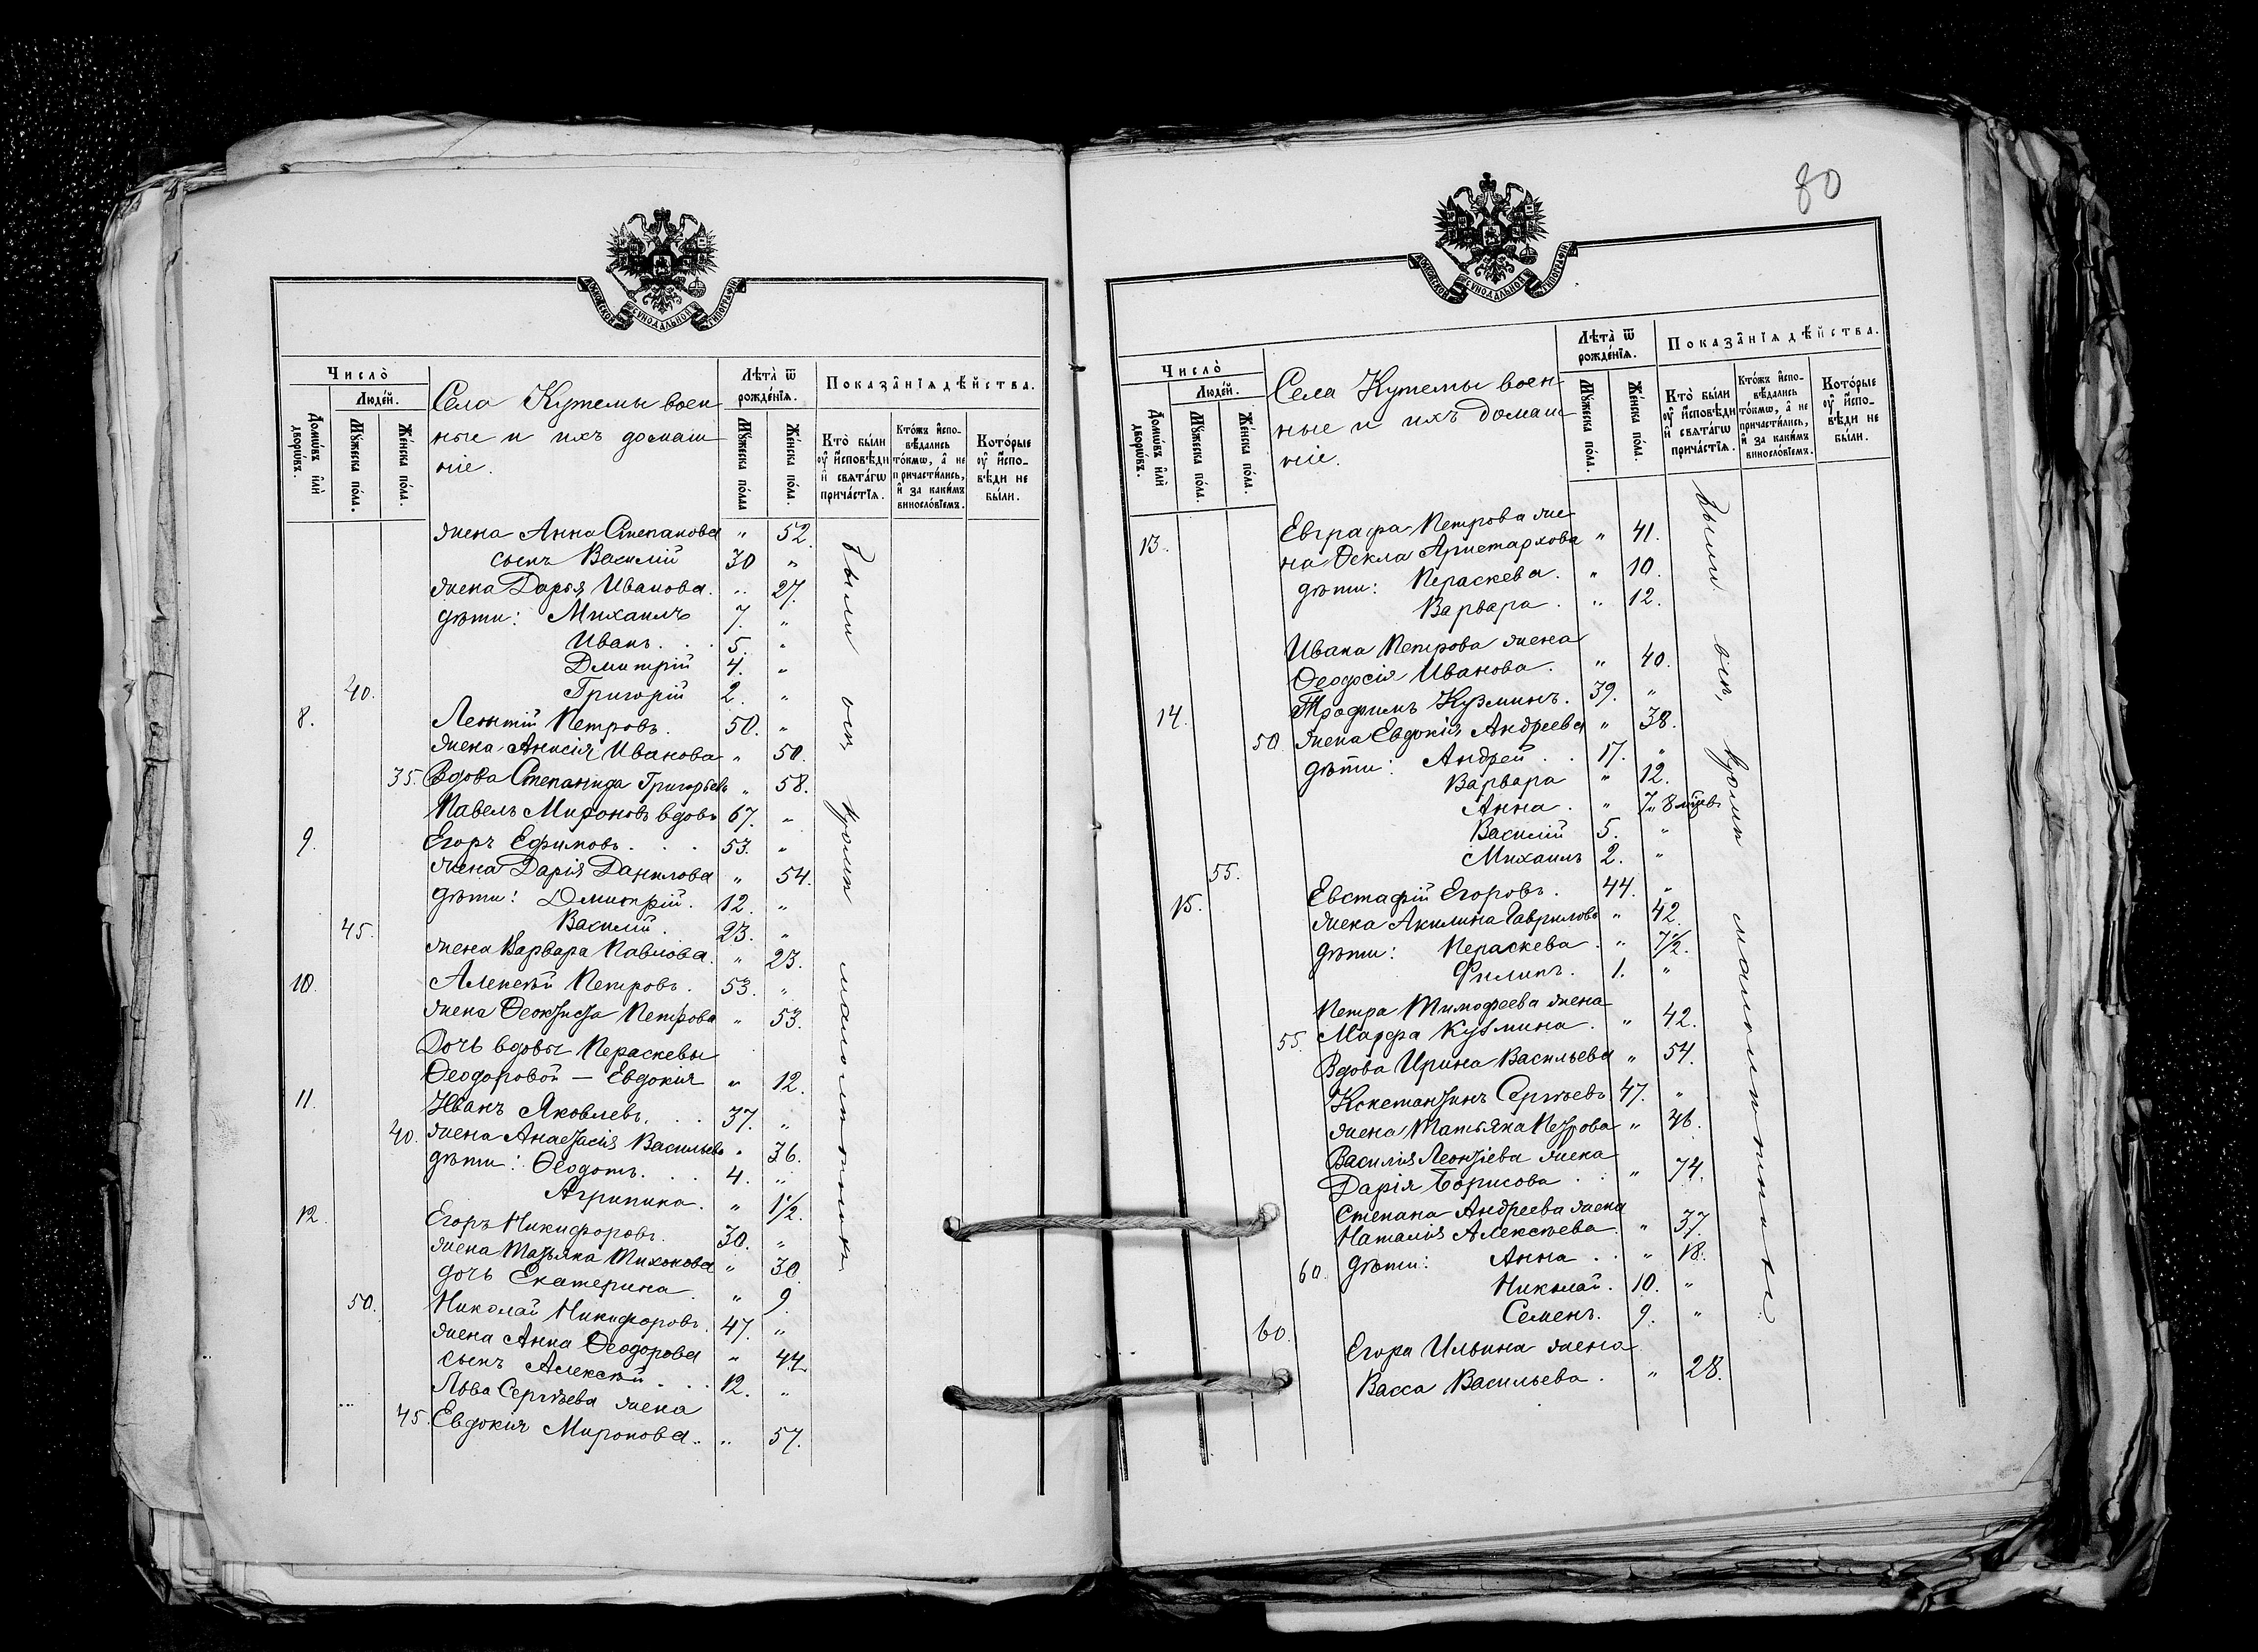 МОСКОВСКОЙ СѴНОДАЛЬНОЙ ТИПОГРАФІИ
Число̀
Домѡ́въ и҆лѝ дворѡ́въ.
Люде́й.
Мꙋ́жеска по́ла.
Же́нска по́ла.
Села Кутемы воен
ные и ихъ домаш
ніе.
Лѣта̀ ѿ рожде́нїѧ.
Мꙋ́жеска по́ла
Же́нска по́ла.
Показа̑нїѧ дѣ́йства.
Кто̀ бы́ли ᲂу҆ и҆́сповѣди и҆ свѧта́гѡ прича́стїѧ.
Кто́жъ и҆спо-вѣ́дались то́кмѡ, а҆ не причасти́лись, и҆ за каки́мъ виносло́вїемъ.
Кото́рые ᲂу҆ и҆́спо-вѣди не бы́ли.
жена Анна Степанова " 52.
сынъ Василій 30 "
жена Дарья Иванова. " 27.
дѣти: Михаилъ 7. "
Иванъ. . 5. "
Дмитрій 4. "
40. Григорій 2. "
8. Леонтій Петровъ. 50. "
жена Анисія Иванова " 50.
35. Вдова Степанида Григорьев " 58.
Павелъ Мироновъ вдовъ 67. "
9. Егоръ Ефимовъ. . . 53. "
жена Дарія Данилова " 54.
дѣти: Дмитрій. 12. "
45. Василій. 23. "
жена Варвара Павлова. " 23.
10. Алексѣй Петровъ. 53. "
жена Ѳеоктиста Петрова " 53.
Дочь вдовы Пераскевы
Ѳеодоровой — Евдокія " 12.
11. Иванъ Яковлевъ. . . 37. "
40. жена Анастасія Васильев " 36.
дѣти: Ѳеодотъ. . . 4. "
Агрипина. " 1½.
12. Егоръ Никифоровъ. 30. "
жена Татьяна Тихонова " 30.
дочь Екатерина. " 9.
50. Николай Никифоровъ. 47. "
жена Анна Ѳеодорова " 44.
сынъ Алексѣй . . . 12. "
Льва Сергѣева жена
45. Евдокія Миронова. " 57.
были всѣ, кромѣ малолѣтнихъ
80
МОСКОВСКОЙ СѴНОДАЛЬНОЙ ТИПОГРАФІИ
Число̀
Домѡ́въ и҆лѝ дворѡ́въ.
Люде́й.
Мꙋ́жеска по́ла.
Же́нска по́ла.
Села Кутемы воен
ные и ихъ домаш
ніе.
Лѣта̀ ѿ рожде́нїѧ.
Мꙋ́жеска по́ла.
Же́нска по́ла.
Показа̑нїѧ дѣ́йства.
Кто̀ бы́ли ᲂу҆ и҆́сповѣди и҆ свѧта́гѡ прича́стїѧ.
Кто́жъ и҆спо-вѣ́дались то́кмѡ, а҆ не причасти́лись, и҆ за каки́мъ виносло́вїемъ.
Кото́рые ᲂу҆ и҆́спо-вѣди не бы́ли.
13. Евграфа Петрова же
на Ѳекла Аристархова " 41.
дѣти: Пераскева. " 10.
Варвара. " 12.
Ивана Петрова жена
Ѳеодосія Иванова. " 40.
14. Трофимъ Кузминъ. 39. "
50. жена Евдокія Андреева " 38.
дѣти: Андрей . . 17. "
Варвара " 12.
Анна. " 7 " 8 мѣсв
Василій 5. "
55. Михаилъ 2. "
15. Евстафій Егоровъ. 44. "
жена Акилина Гаврилова " 42.
дѣти: Пераскева. " 7½.
Филипъ. 1. "
Петра Тимофеева жена
55. Марфа Кузмина. " 42.
Вдова Ирина Васильева " 54.
Константинъ Сергѣевъ 47. "
жена Татьяна Петрова " 46.
Василія Леонтіева жена
Дарія Борисова . . " 74.
Степана Андреева жена
Наталія Алексѣева. " 37.
60. дѣти: Анна . . " 18.
Николай. 10. "
60. Семенъ. 9. "
Егора Ильина жена
Васса Васильева. " 28.
были всѣ, кромѣ малолѣтнихъ